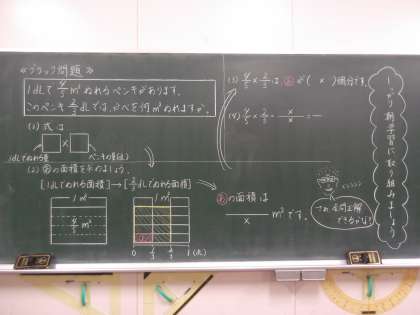 ≪ブラック問題≫
1dLで4/5m²ぬれるペンキがあります。
このペンキ2/3dLでは、かべを何m²ぬれますか。
(1) 式は
□×□
1dLでぬれる量
ペンキの量(dL)
(2) あの面積を求めましょう。
[1dLでぬれる面積]→[2/3dLでぬれる面積]
1m²
4/5m²
1m²
0 1/3 2/3 1(dL)
(3) 4/5×2/3は あが( × )個分です。
(4) 4/5×2/3=
×
×
=
あの面積は
×
m²です。
しっかり朝学習に取り組みましょう
全問正解
できるかな?